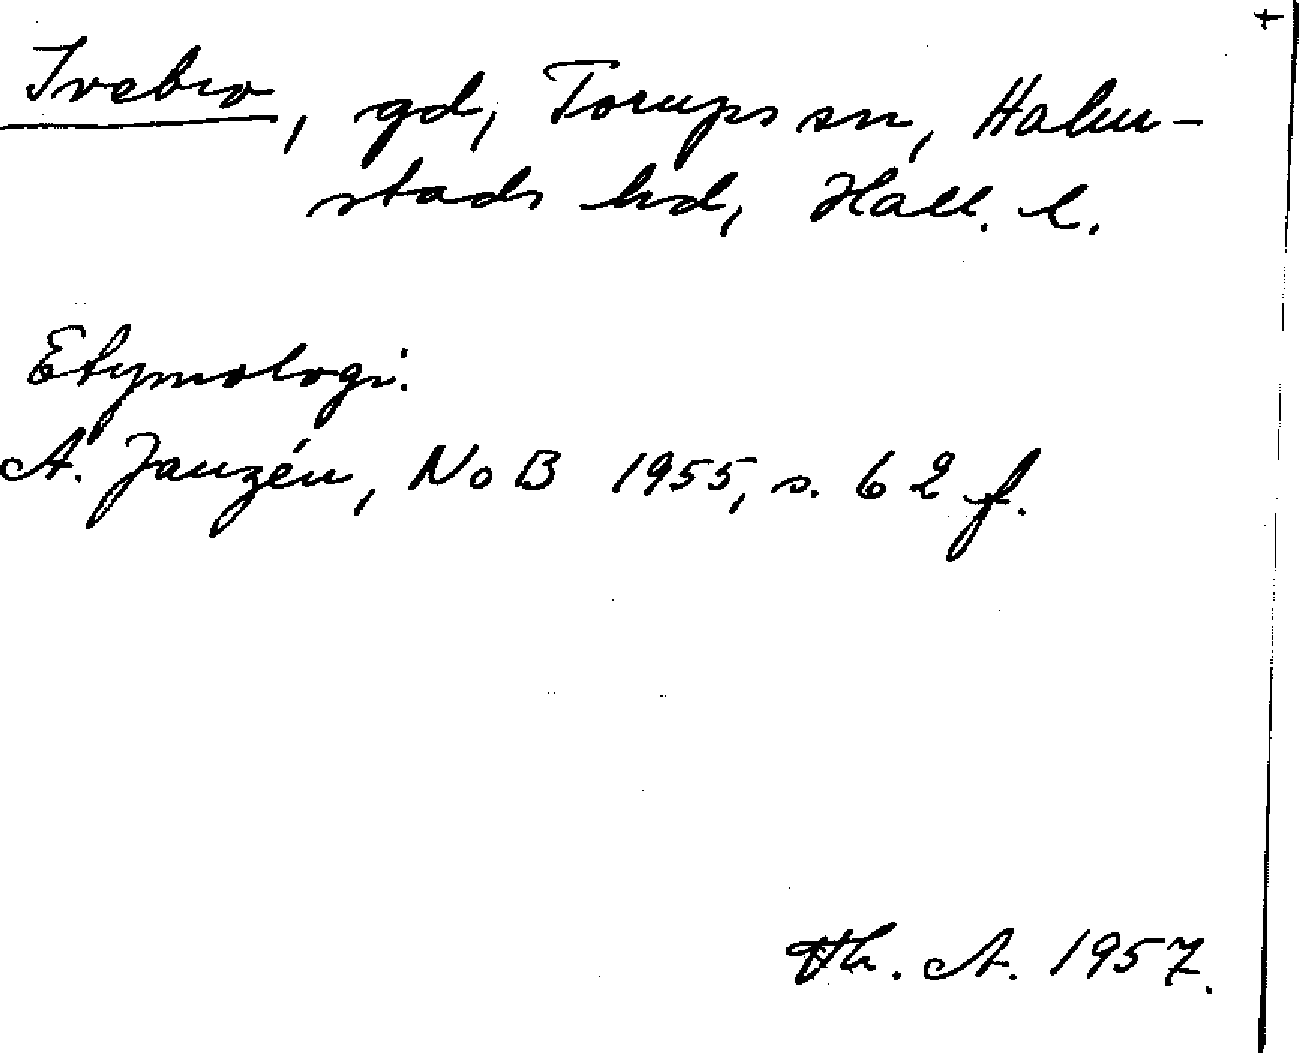 Ivebro, gd, Torups sn, Halm-
stads hd, Hall. l.
Etymologi:
A. Janzén, NoB 1955, s. 62 f.
Th. A. 1957.